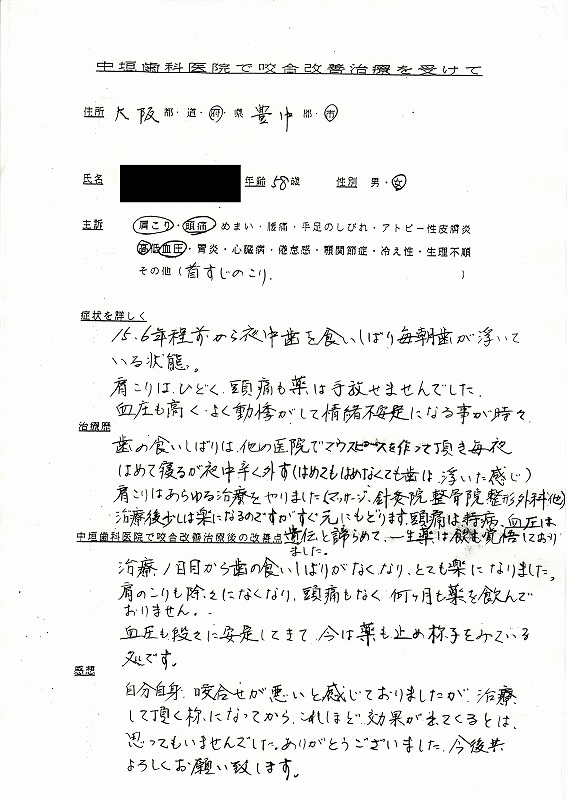 中垣歯科医院で咬合改善治療を受けて
住所 大阪 都・道・府・県 豊中 郡・市
氏名 年齢 58歳 性別 男・女
主訴 肩こり・頭痛・めまい・腰痛・手足のしびれ・アトピー性皮膚炎
高低血圧・胃炎・心臓病・倦怠感・顎関節症・冷え性・生理不順
その他(首すじのこり. )
症状を詳しく
15.6年程前から夜中歯を食いしばり毎朝歯が浮いて
いる状態。
肩こりは、ひどく、頭痛も薬は手放せませんでした.
血圧も高く、よく動悸がして情緒不安定になる事が時々
治療歴
歯の食いしばりは、他の医院でマウスピースを作って頂き毎夜
はめて寝るが夜中辛く外す(はめてもはめなくても歯は浮いた感じ)
肩こりはあらゆる治療をやりました(マッサージ、針灸院、整骨院、整形外科他)
治療後少しは楽になるのですがすぐ元にもどります。頭痛は持病、血圧は
中垣歯科医院で咬合改善治療後の改善点
遺伝と諦らめて、一生薬は飲む覚悟でおり
ました。
治療1日目から歯の食いしばりがなくなり、とても楽になりました。
肩のこりも除々になくなり、頭痛もなく何ヶ月も薬を飲んで
おりません。
血圧も段々に安定してきて、今は薬も止め様子をみている
処です。
感想
自分自身、咬合せが悪いと感じておりましたが、治療
して頂く様になってから、これほど効果が出てくるとは、
思ってもいませんでした。ありがとうございました。今後共
よろしくお願い致します。